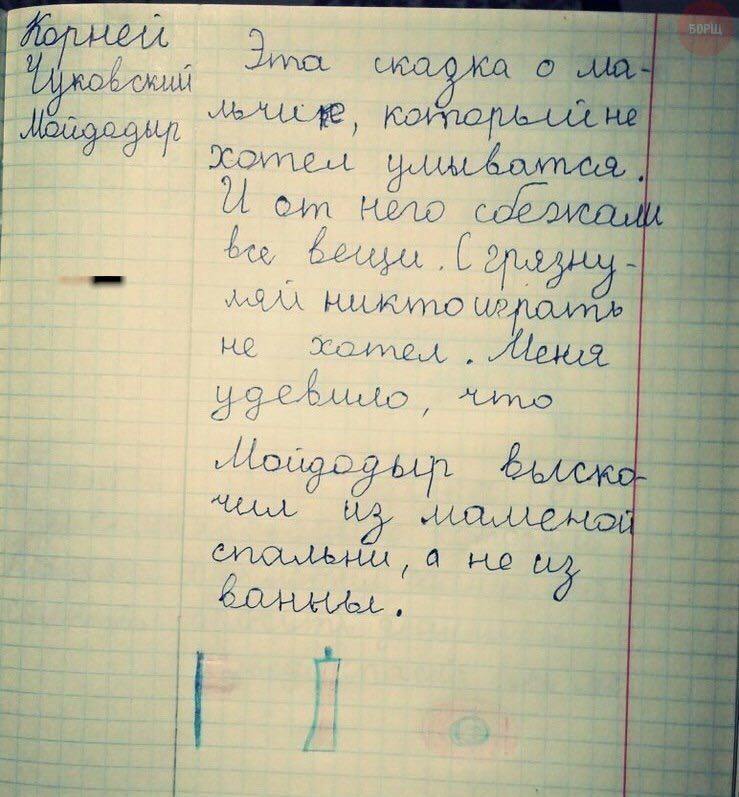 БОРЩ
Корней
Чуковский
Мойдодыр
Эта сказка о ма-
льчике, который не
хотел умыватся.
И от него сбежали
все вещи. С грязну-
ляй никто играть
не хотел. Меня
удевило, что
Мойдодыр выско-
чил из маменой
спальни, а не из
ванны.